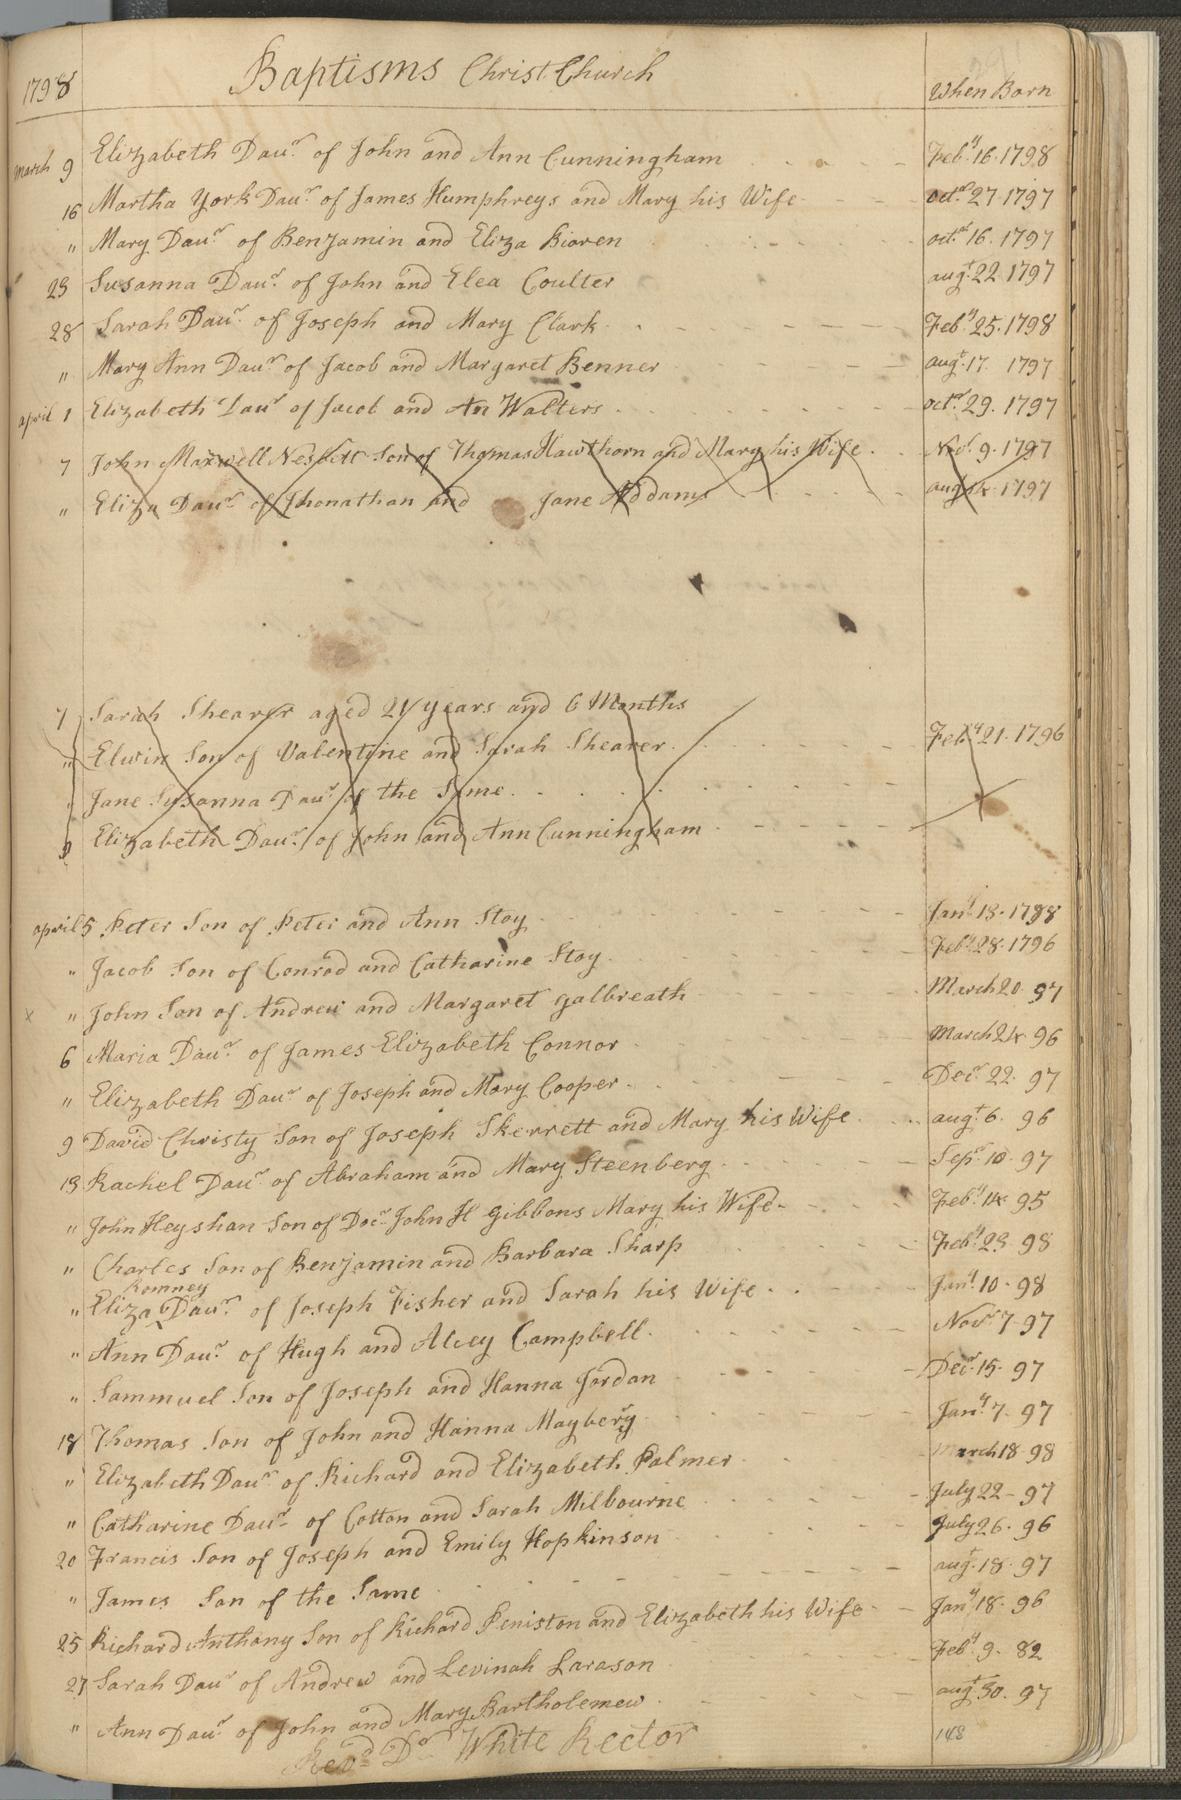 1798 Baptisms Christ Church When Born
March 9 Elizabeth Daur. of John and Ann Cunningham Feby. 16. 1798
16 Martha York Daur. of James Humphreys and Mary his Wife octr. 27. 1797
" Mary Daur. of Benjamin and Eliza Bioren octr. 16. 1797
23 Susanna Daur. of John and Elea Coulter augt. 22. 1797
28 Sarah Daur. of Joseph and Mary Clark Feby. 25. 1798
" Mary Ann Daur. of Jacob and Margaret Benner augt. 17. 1797
april 1 Elizabeth Daur of Jacob and An Walters octr. 29. 1797
7 John Maxwell Nesbitt Son of Thomas Hawthorn and Mary his Wife Novr. 9. 1797
" Eliza Daur. of Jhonathan and Jane Addams aug 1797
7 Sarah Shearer aged 24 years and 6 Months
" Elwin Son of Valentine and Sarah Shearer. Feby 21. 1796
" Jane Susanna Daur. of the Same.
9 Elizabeth Daur. of John and Ann Cunningham
april 5 Peter Son of Peter and Ann Stoy Jany. 13. 1798
" Jacob Son of Conrad and Catharine Stoy. Feby. 28. 1796
x " John Son of Andrew and Margaret galbreath March 20. 97
6 Maria Daur. of James Elizabeth Connor March 24. 96
" Elizabeth Daur of Joseph and Mary Cooper. Decr. 22. 97
9 David Christy Son of Joseph Skerrett and Mary his Wife augt. 6. 96
13 Rachel Daur. of Abraham and Mary Steenberg Sepr. 10. 97
" John Heyshan Son of Docr. John H gibbons Mary his Wife. Feby. 14. 95
" Charles Son of Benjamin and Barbara Sharp Feby. 23. 98
Romney
" Eliza Daur. of Joseph Fisher and Sarah his Wife Jany. 10. 98
" Ann Daur. of Hugh and Alcey Campbell. Novr. 7. 97
" Sammuel Son of Joseph and Hanna Jordan Decr. 15. 97
18 Thomas Son of John and Hanna Maybery Jany. 7. 97
" Elizabeth Daur. of Richard and Elizabeth Palmer March 18 98
" Catharine Daur. of Cotton and Sarah Milbourne July 22 - 97
20 Francis Son of Joseph and Emily Hopkinson July 26. 96
" James Son of the Same augt. 18. 97
25 Richard Anthony Son of Richard Peniston and Elizabeth his Wife Jany. 18. 96
27 Sarah Daur of Andrew and Levinah Larason Feby. 9. 82
" Ann Daur. of John and Mary Bartholemew augt. 30. 97
Revd. Dr. White Rector 148